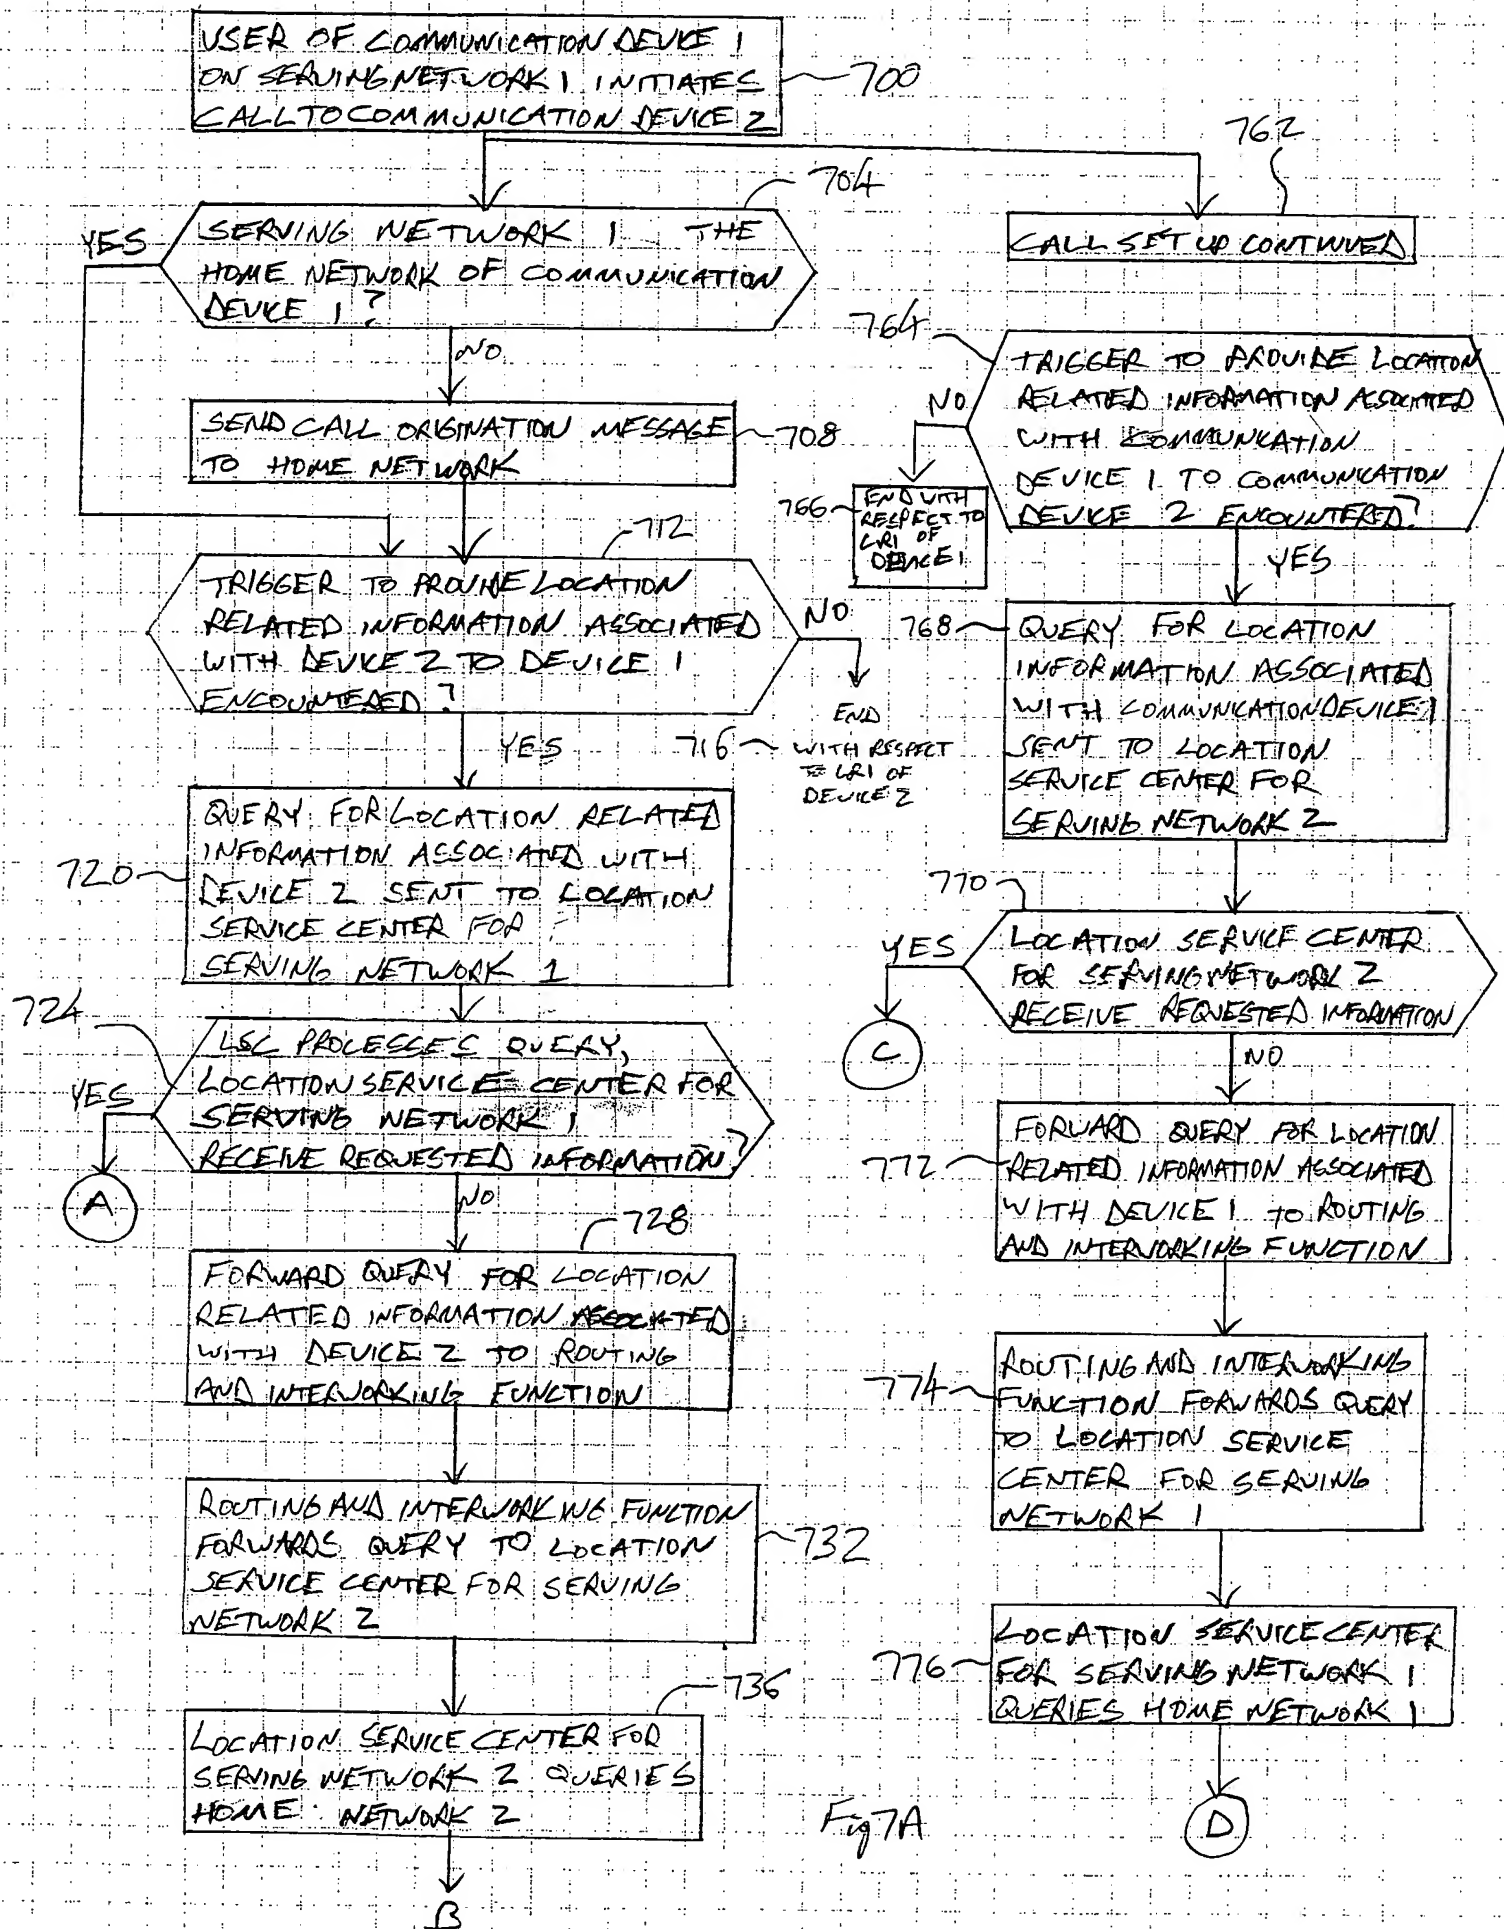 USER OF COMMUNICATION DEVICE 1
ON SERVING NETWORK 1 INITIATES
CALL TO COMMUNICATION DEVICE 2
700
704
YES
SERVING NETWORK 1 THE
HOME NETWORK OF COMMUNICATION
DEVICE 1?
NO
SEND CALL ORIGINATION MESSAGE
TO HOME NETWORK
708
712
TRIGGER TO PROVIDE LOCATION
RELATED INFORMATION ASSOCIATED
WITH DEVICE 2 TO DEVICE 1
ENCOUNTERED?
NO
716
END
WITH RESPECT
TO LRI OF
DEVICE 2
YES
720
QUERY FOR LOCATION RELATED
INFORMATION ASSOCIATED WITH
DEVICE 2 SENT TO LOCATION
SERVICE CENTER FOR
SERVING NETWORK 1
724
YES
LSC PROCESSES QUERY,
LOCATION SERVICE CENTER FOR
SERVING NETWORK 1
RECEIVE REQUESTED INFORMATION?
A
NO
728
FORWARD QUERY FOR LOCATION
RELATED INFORMATION ASSOCIATED
WITH DEVICE 2 TO ROUTING
AND INTERWORKING FUNCTION
ROUTING AND INTERWORKING FUNCTION
FORWARDS QUERY TO LOCATION
SERVICE CENTER FOR SERVING
NETWORK 2
732
736
LOCATION SERVICE CENTER FOR
SERVING NETWORK 2 QUERIES
HOME NETWORK 2
B
762
CALL SET UP CONTINUED
764
TRIGGER TO PROVIDE LOCATION
RELATED INFORMATION ASSOCIATED
WITH COMMUNICATION
DEVICE 1 TO COMMUNICATION
DEVICE 2 ENCOUNTERED?
NO
766
END WITH
RESPECT TO
LRI OF
DEVICE 1
YES
768
QUERY FOR LOCATION
INFORMATION ASSOCIATED
WITH COMMUNICATION DEVICE 1
SENT TO LOCATION
SERVICE CENTER FOR
SERVING NETWORK 2
770
YES
LOCATION SERVICE CENTER
FOR SERVING NETWORK 2
RECEIVE REQUESTED INFORMATION
C
NO
772
FORWARD QUERY FOR LOCATION
RELATED INFORMATION ASSOCIATED
WITH DEVICE 1 TO ROUTING
AND INTERWORKING FUNCTION
774
ROUTING AND INTERWORKING
FUNCTION FORWARDS QUERY
TO LOCATION SERVICE
CENTER FOR SERVING
NETWORK 1
776
LOCATION SERVICE CENTER
FOR SERVING NETWORK 1
QUERIES HOME NETWORK 1
D
Fig 7A